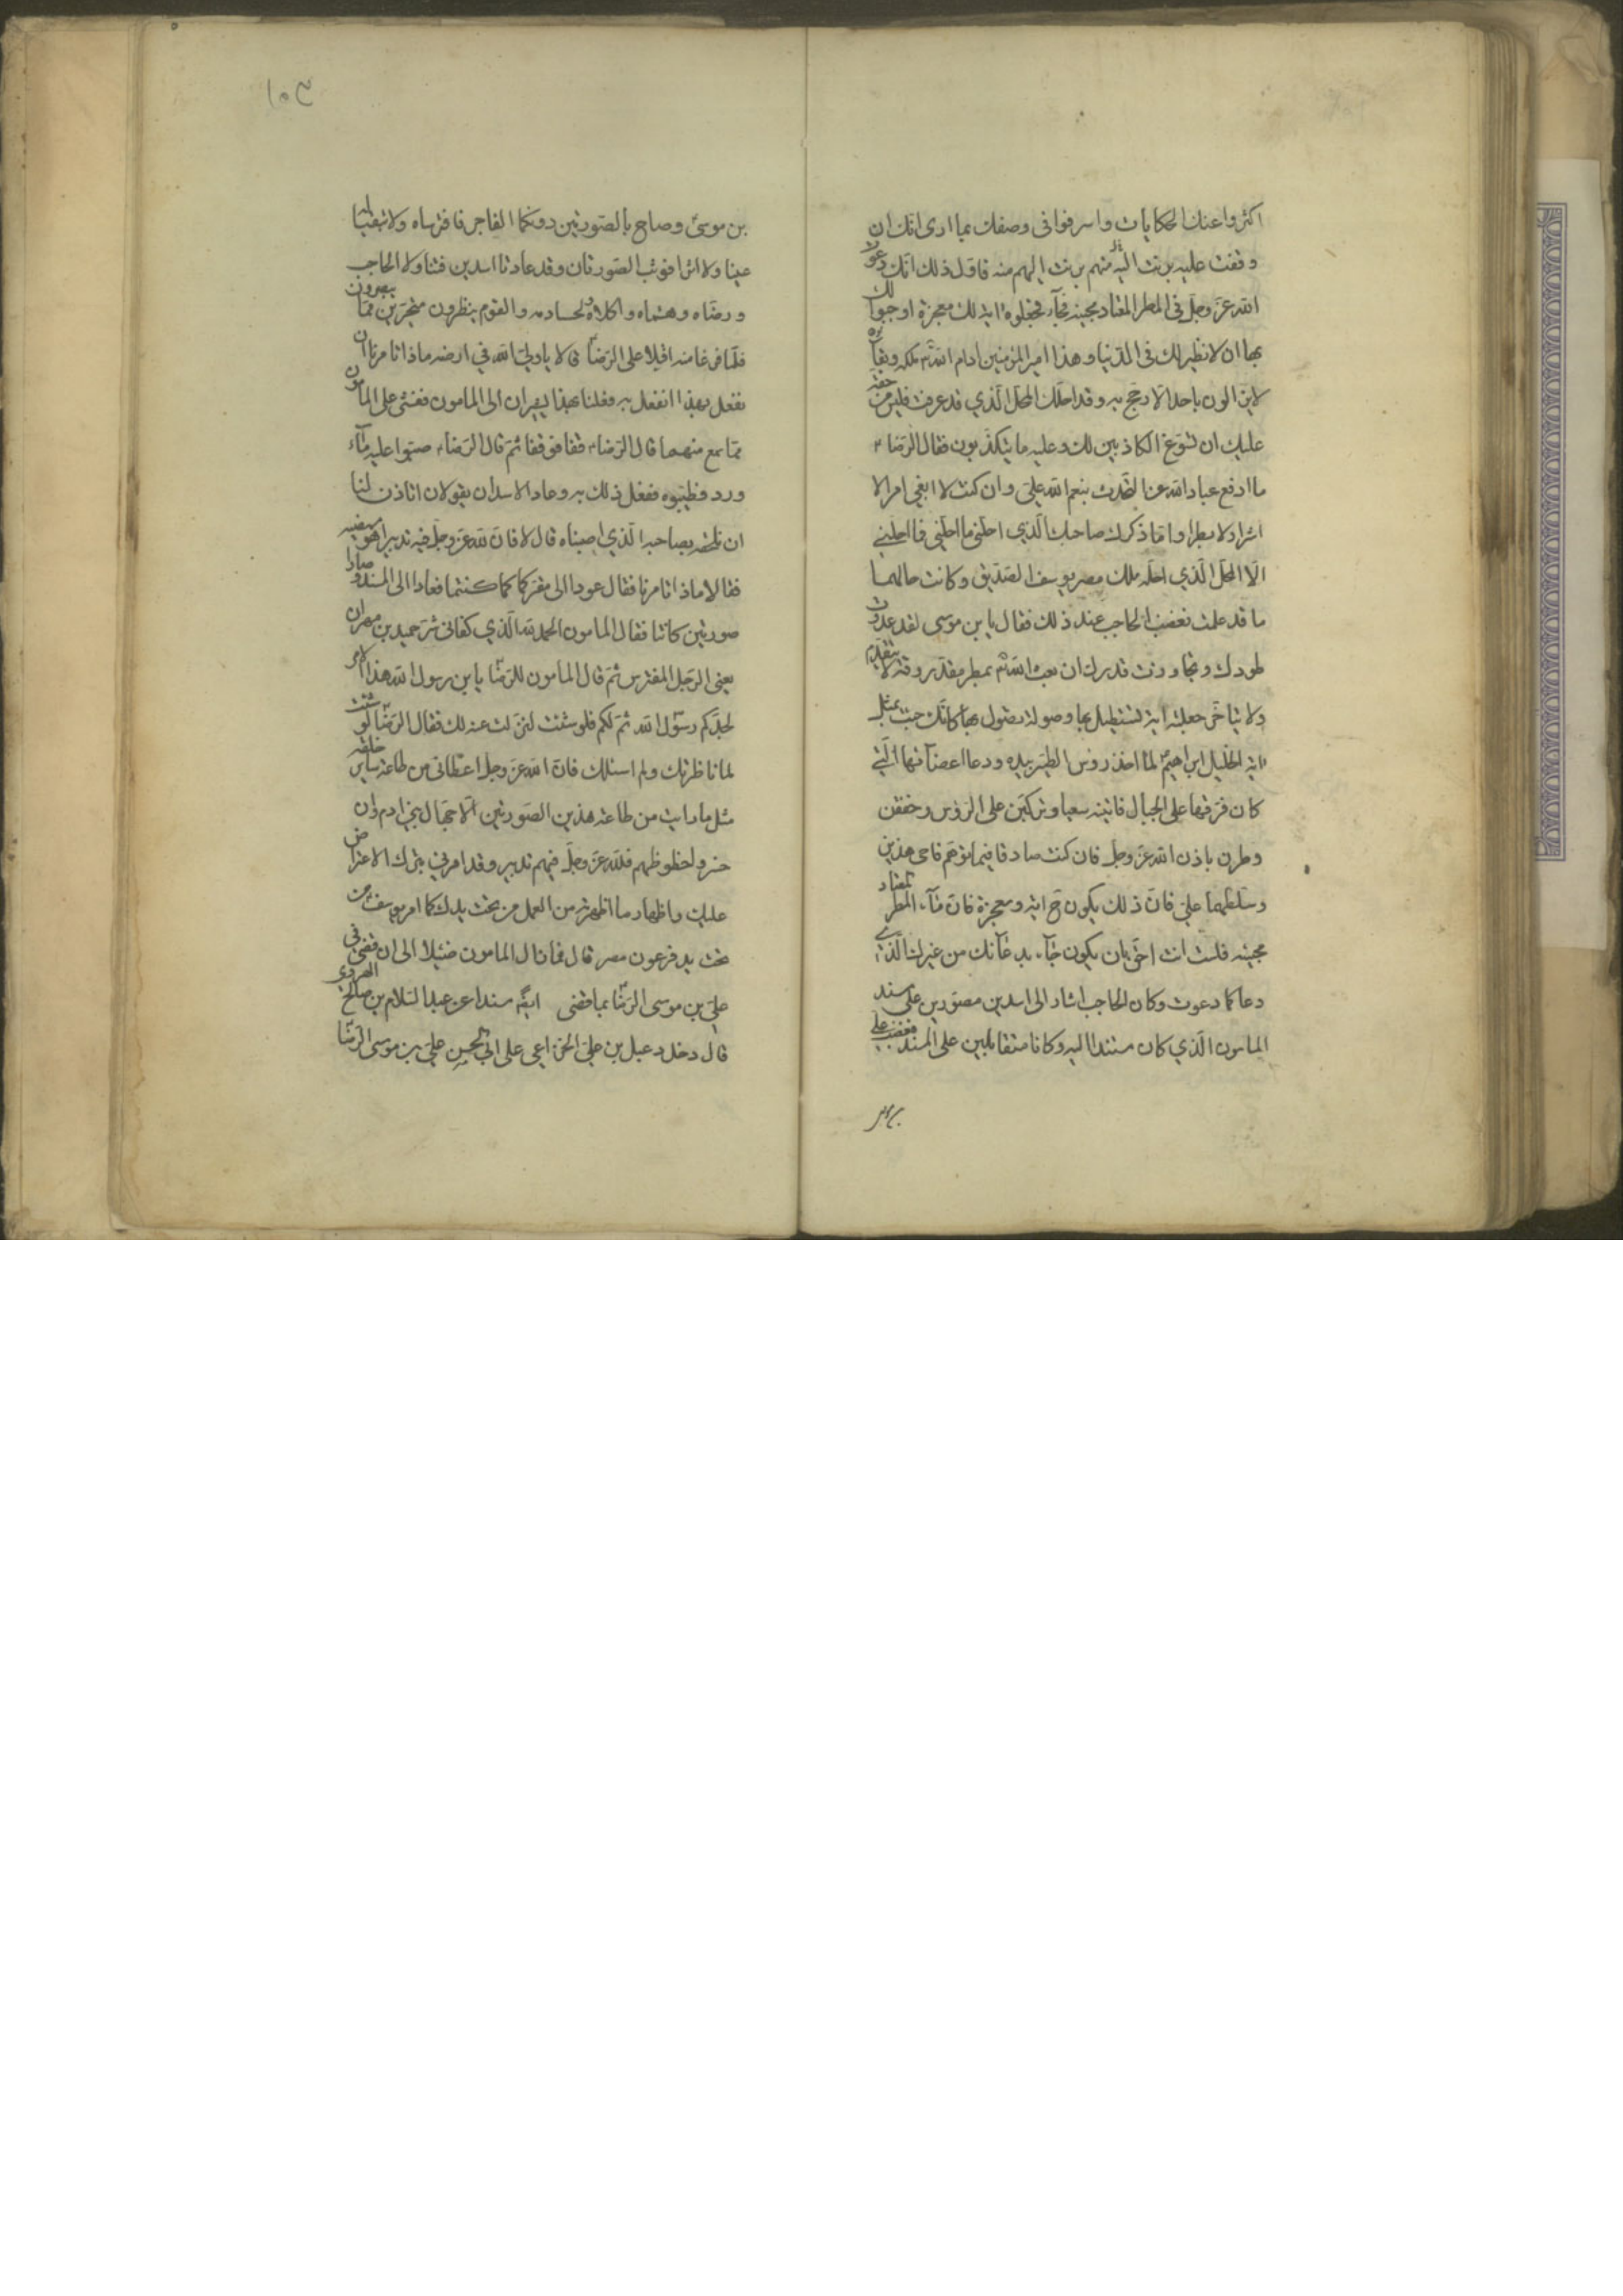 اكثروا عنك الحكايات واسرفوا فى وصفك بما ارى انك ان
وقفت عليه برئت اليهم منه فاول ذلك انك دعوت
الله عز وجل فى المطر المعتاد مجيئه فجاء فجعلوه اية لك معجزة اوجبوا لك
بها ان لا نظير لك فى الدنيا وهذا امير المؤمنين ادام الله ملكه وبقاءه
لا يوازن باحد الا رجح به وقد احلك المحل الذي قد عرفت فليس من حقه
عليك ان تسوغ الكاذبين لك وعليه ما يتكذبون فقال الرضا ع
ما ادفع عباد الله عن التحدث بنعم الله علي وان كنت لا ابغي امرا لا
اشرا ولا بطرا واما ذكرك صاحبك الذي احلني ما احلني فما احلني
الا المحل الذي احله ملك مصر يوسف الصديق وكانت حالهما
ما قد علمت فغضب الحاجب عند ذلك فقال يابن موسى لقد عدوت
طورك وتجاوزت قدرك ان بعث الله بمطر مقدر وقته لا يتقدم
ولا يتاخر جعلته اية تستطيل بها وصولة تصول بها كانك جئت بمثل
اية الخليل ابراهيم لما اخذ رؤس الطير بيده ودعا اعضائها التي
كان فرقها على الجبال فاتينه سعيا وتركبن على الرؤس وخفقن
وطرن باذن الله عز وجل فان كنت صادقا فيما توهم فاحى هذين
وسلطهما علي فان ذلك يكون ح اية ومعجزة فاما المطر المعتاد
مجيئه فلست انت احق بان يكون جاء بدعائك من غيرك الذي
دعا كما دعوت وكان الحاجب اشار الى اسدين مصورين على مسند
المامون الذي كان مستندا اليه وكانا متقابلين على المسند فغضب علي
بن موسى
بن موسى وصاح بالصورتين دونكما الفاجر فافترساه ولا تبقيا له
عينا ولا اثرا فوثب الصورتان وقد عادتا اسدين فتناولا الحاجب
ورضاه وهشماه واكلاه ولحسا دمه والقوم ينظرون متحيرين مما يبصرون
فلما فرغا منه اقبلا على الرضا ع قالا يا ولي الله في ارضه ماذا تامرنا ان
نفعل بهذا انفعل به فعلنا بهذا يشيران الى المامون فغشى على المامون
مما سمع منهما قال الرضا ع قفا فوقفا ثم قال الرضا ع صبوا عليه ماء
ورد وطيبوه ففعل ذلك به وعاد الاسدان يقولان اتاذن لنا
ان نلحقه بصاحبه الذي افنيناه قال لا فان لله عز وجل فيه تدبيرا هو ممضيه
فقالا ماذا تامرنا فقال عودا الى مقركما كما كنتما فعادا الى المسند وصارا
صورتين كانتا فقال المامون الحمد لله الذي كفانى شر حميد بن مهران
يعنى الرجل المفترس ثم قال المامون للرضا يابن رسول الله هذا الامر
لجدكم رسول الله ثم لكم فلو شئت لنزلت عنه لك فقال الرضا لو شئت
لما ناظرتك ولم اسئلك فان الله عز وجل اعطانى من طاعة ساير خلقه
مثل ما رايت من طاعة هذين الصورتين الا جهال بنى ادم وان
خسروا حظوظهم فلله عز وجل فيهم تدبير وقد امرنى بترك الاعتراض
عليك واظهار ما اظهرته من العمل من تحت يدك كما امر يوسف من
تحت يد فرعون مصر قال فما زال المامون ضئيلا الى ان قضى فى
علي بن موسى الرضا بما قضى ايضا مسندا عن عبد السلام بن صالح الهروي
قال دخل دعبل بن علي الخزاعي على ابي الحسن علي بن موسى الرضا
١٥٣